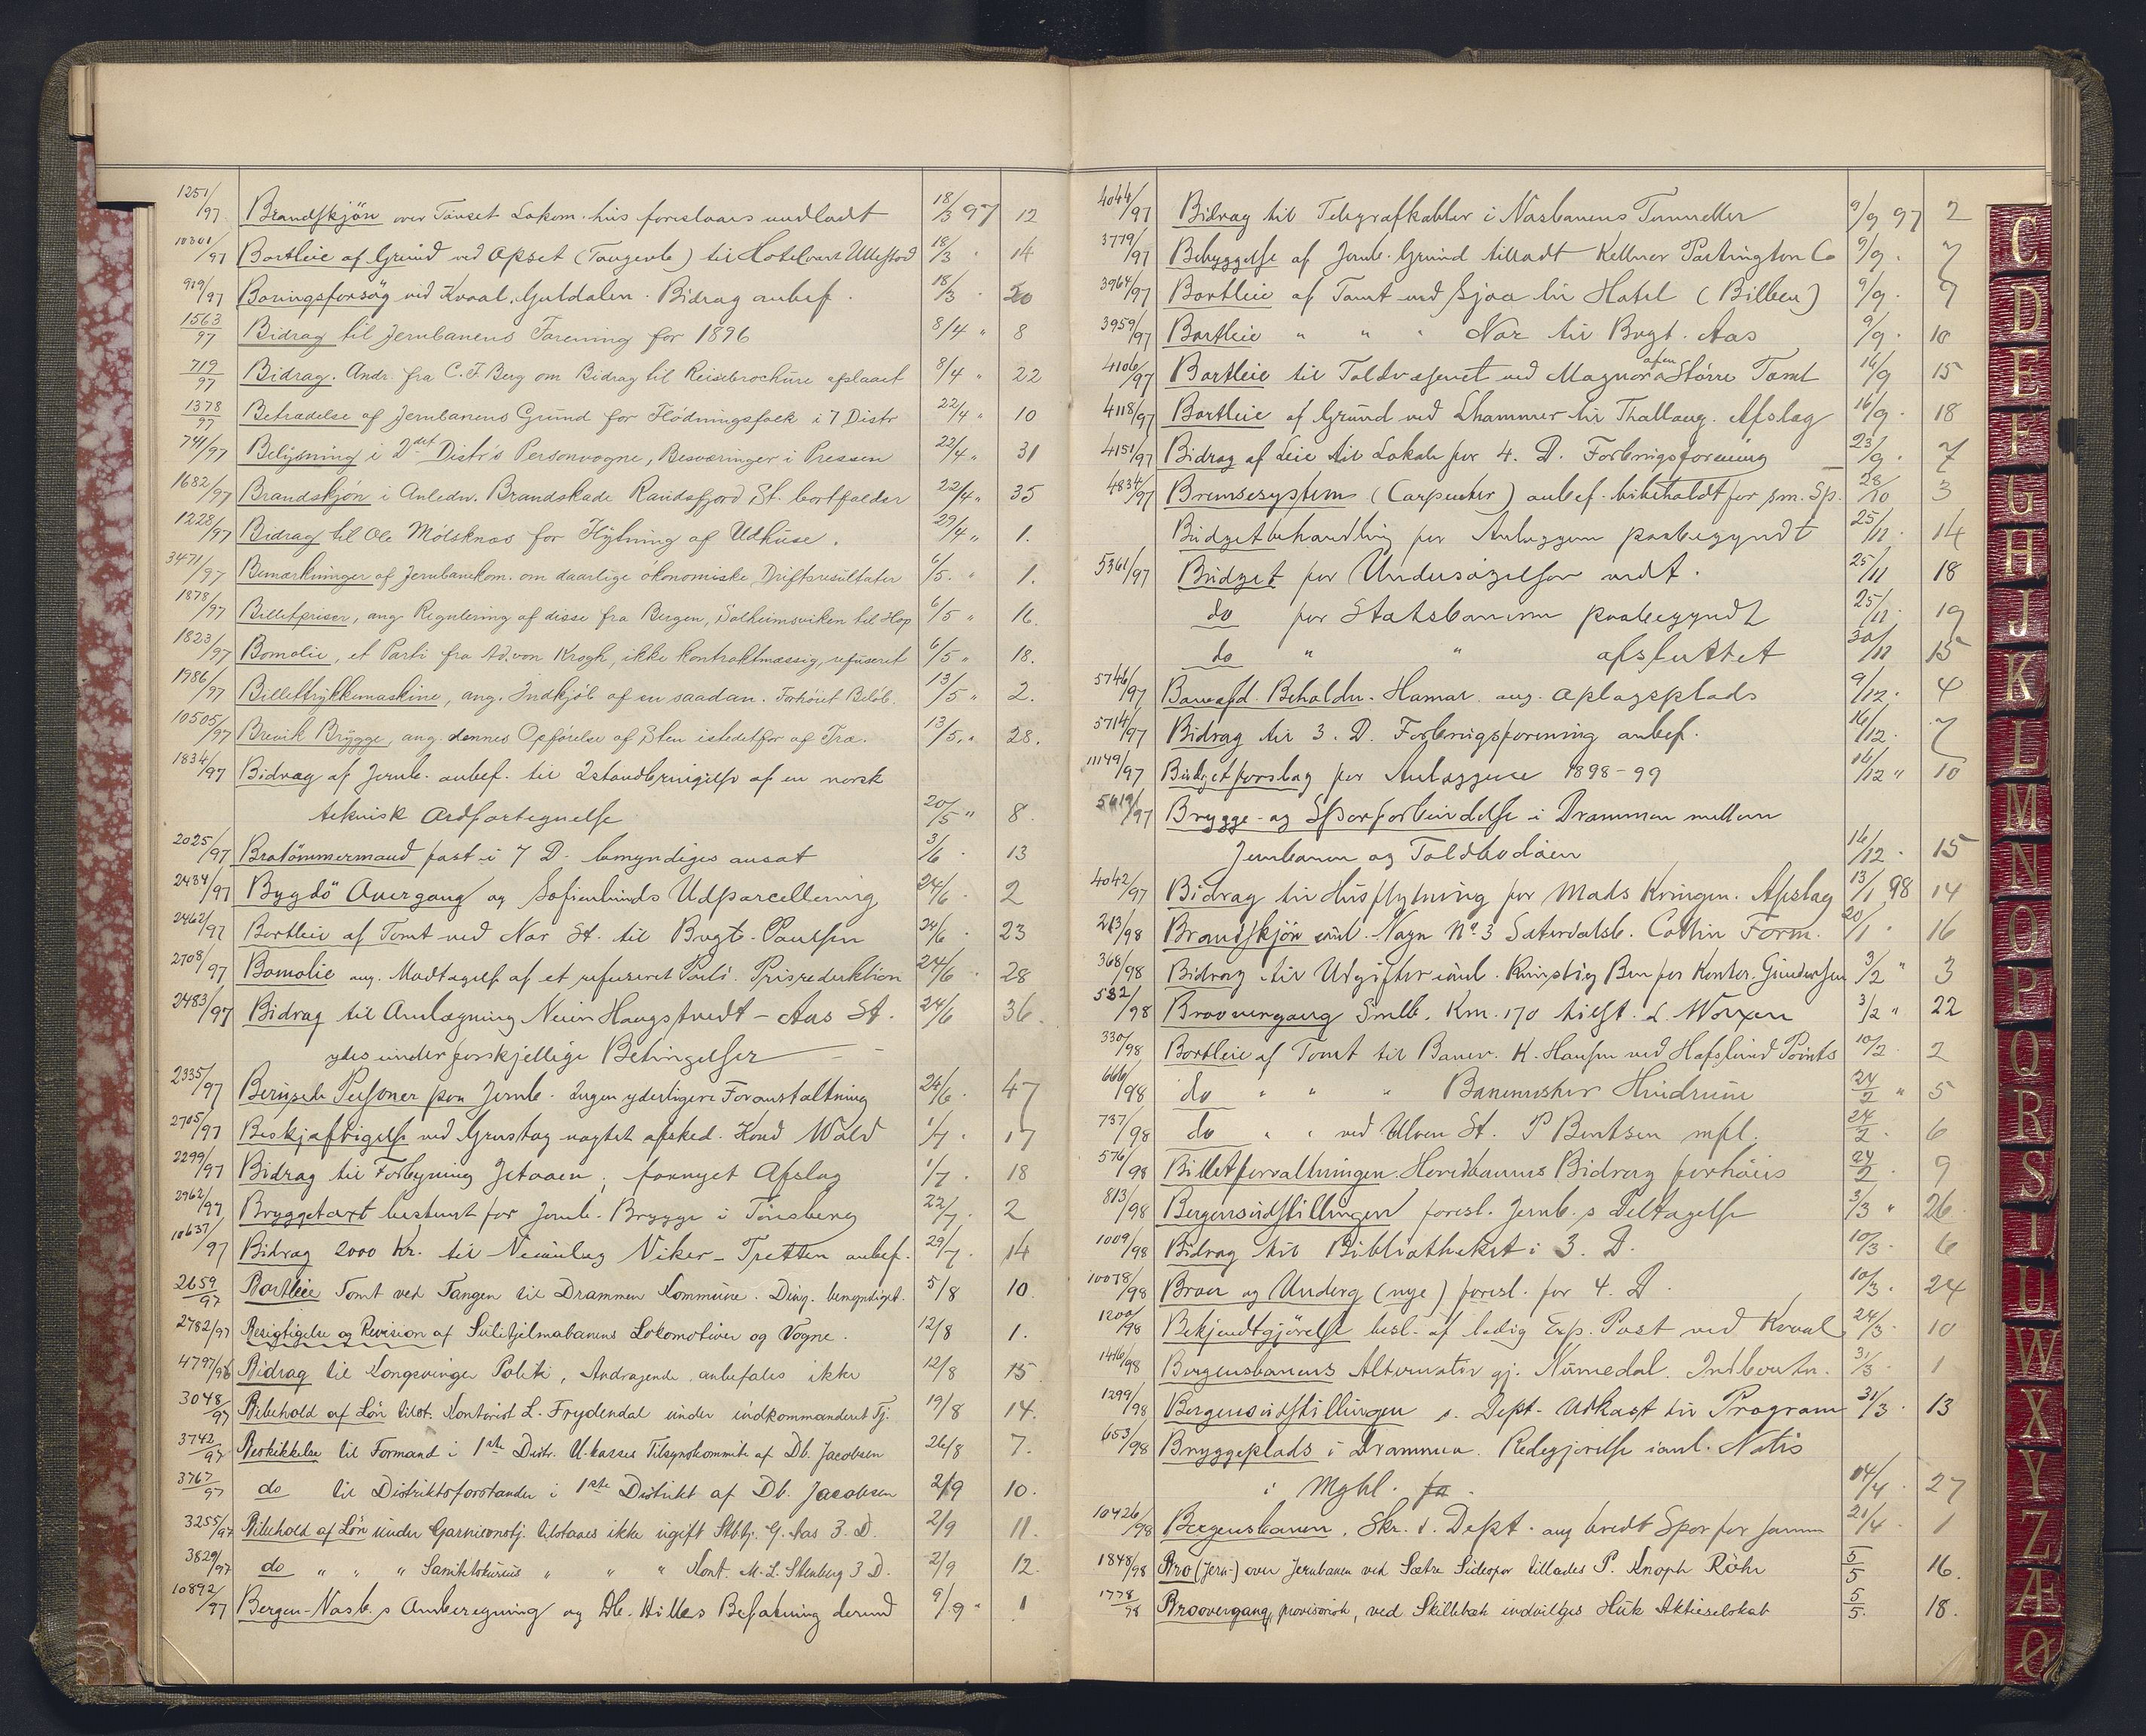 1251/97 Brandskjön over Tönset Lokom. hus foreslaaes undladt 18/3 97 12
10301/97 Bortleie af Grund ved Opset (Taugevb) til Hotelvært Ullestad 18/3 " 14
919/97 Boringsforsög ved Kvaal, Guldalen. Bidrag anbef. 18/3 " 20
1563/97 Bidrag til Jernbanens Forening for 1896 8/4 " 8
719/97 Bidrag. Andr. fra C. F. Berg om Bidrag til Reisebrochure afslaaet 8/4 " 22
1378/97 Betrædelse af Jernbanens Grund for Flödningsfolk i 7 Distr 22/4 " 10
741/97 Belysning i 2det Distr's Personvogne, Besværinger i Pressen 22/4 " 31
1682/97 Brandskjön i Anledn. Brandskade Randsfjord St. bortfalder 22/4 " 35
1228/97 Bidrag til Ole Mölsknæs for Flytning af Udhuse. 29/4 " 1.
3471/97 Bemærkninger af Jernbanekom. om daarlige ökonomiske Driftsresultater 6/5. " 1.
1878/97 Billetpriser, ang. Regulering af disse fra Bergen, Solheimsviken til Hop 6/5 " 16.
1823/97 Bomolie, et Parti fra Ad. von Krogh, ikke kontraktmæssig, refuseret 6/5 " 18.
1986/97 Billettrykkemaskine, ang. Indkjöb af en saadan. Forhöiet Belöb. 13/5 " 2.
10505/97 Brevik Brygge, ang. dennes Opförelse af Sten istedetfor af Træ. 13/5. " 28.
1834/97 Bidrag af Jernb. anbef. til Istandbringelse af en norsk
teknisk Ordfortegnelse 20/5 " 8.
2025/97 Brotömmermand fast i 7 D. bemyndiges ansat 3/6 " 13
2484/97 Bygdö Overgang og Sofienlunds Udparcellering 24/6 " 2
2462/97 Bortleie af Tomt ved Nor St. til Bvgt. Paulsen 24/6 " 23
2708/97 Bomolie ang. Modtagelse af et refuseret Parti. Prisreduktion 24/6 " 28
2483/97 Bidrag til Omlægning Veien Haugstvedt - Aas St. 24/6 36.
ydes under forskjellige Betingelser
2335/97 Berusede Personer paa Jernb. Ingen yderligere Foranstaltning 24/6 " 47
2705/97 Beskjæftigelse ved Grustag nægtet afsked. Kond Wold 1/7 " 17
2299/97 Bidrag til Forbygning Jetaaen, fornyet Afslag 1/7 " 18
2962/97 Bryggetaxt bestemt for Jernb. Brygge i Tönsberg 22/7 " 2
10637/97 Bidrag 2000 Kr. til Veianlæg Viker - Tretten anbef. 29/7 " 14
2659/97 Bortleie Tomt ved Tangen til Drammen Kommune. Ding. bemyndiget. 5/8 10.
2782/97 Besigtigelse og Revision af Sulitjelmabanens Lokomotiver og Vogne. 12/8 1.
4797/96 Bidrag til Kongsvinger Politi, Andragende anbefales ikke 12/8 15
3048/97 Bibehold af Lön tilst. Kontorist L. Frydendal under indkommanderet Tj. 19/8 14.
3742/97 Beskikkelse til Formand i 1ste Distr. U. kasses Tilsynskommite af Db. Jacobsen 26/8 7.
3767/97 do til Distriktsforstander i 1ste Distrikt af Db. Jacobsen 2/9 10.
3255/97 Bibehold af Lön under Garnisonstj. tilstaaes ikke ugift Stbtj. G. Aas 3. D. 2/9 11.
3829/97 do " " " Sanitetskursus " " " Kont. M. L. Stenberg 3 D. 2/9 12.
10892/97 Bergen-Vosb.s Omberegning og Db. Hilles Befatning derved 9/9 " 1
4044/97 Bidrag til Telegrafkabler i Vosbanens Tunneller 9/9 97 2
3779/97 Bebyggelse af Jernb. Grund tilladt Kellner Partington Co 9/9 " 7
3964/97 Bortleie af Tomt ved Sjoa til Hotel (Billeu) 9/9 " 9
3959/97 Bortleie " " " Nor til Bvgt. Aas 9/9 " 10
4106/97 Bortleie til Toldvæsenet ved Magnor af en Större Tomt 16/9 15
4118/97 Bortleie af Grund ved Lhammer til Thallaug. Afslag 16/9 " 18
4151/97 Bidrag af Leie til Lokale for 4. D. Forbrugsforening 23/9 " 7
4834/97 Bremsesystem (Carpenter) anbef. bibeholdt for sm. Sp. 28/10 3
Budgetbehandling for Anlæggene paabegyndt 25/11 " 14
5361/97 Budget for Undersögelser vedt. 25/11 18
do for Statsbanerne paabegyndt 25/11 " 19
do " " afsluttet 30/11 15
5746/97 Banafd. Beholdn. Hamar ang. Oplagsplads 9/12 " 4
5714/97 Bidrag til 3. D. Forbrugsforening anbef. 16/12 " 7
11149/97 Budgetforslag for Anlæggene 1898-99 16/12 " 10
/97 Brygge- og Sporforbindelse i Drammen mellem
Jernbanen og Toldbodöen 16/12 " 15
4042/97 Bidrag til Husflytning for Mads Kringen. Afslag 13/1 98 14
243/98 Brandskjön anl. Vogn No 3 Sætersdalsb. Cathin. Form. 20/1 " 16
368/98 Bidrag til Udgifter anl. Kunstig Ben for Kontor. Gundersen 3/2 " 3
532/98 Broovergang Smlb. Km. 170 tilst. L. Woxen 3/2 " 22
330/98 Bortleie af Tomt til Banev. K. Hansen ved Hafslund Points 10/2 " 2
666/98 do " " " Banemester Hvidrum 24/2 " 5
737/98 do " " ved Ulven St. P Berntsen mfl. 24/2 " 6
576/98 Billetforvaltningen. Hovedbanens Bidrag forhöies 24/2 " 9
813/98 Bergensudstillingen foresl. Jernb.s Deltagelse 3/3 " 26
1009/98 Bidrag til Bibliotheket i 3. D. 10/3 " 6
10078/98 Broer og Underg (nye) foresl. for 4. D. 10/3 " 24
1200/98 Bekjendtgjörelse besl. af ledig Exp. Post ved Kvaal 24/3 " 10
1416/98 Bergensbanens Alternativ gj. Numedal. Indberetn. 31/3 " 1
1299/98 Bergensudstillingen s. Dept. Udkast til Program 31/3 " 13
653/98 Bryggeplads i Drammen. Redegjörelse ianl. Notis
i Mghl. 14/4 " 27
10426/98 Bergensbanen, Skr. t. Dept. ang bredt Spor for samme 21/4 " 1
1848/98 Bro (Jern-) over Jernbanen ved Sætre Sidespor tillades P. Knoph Röhr 5/5 16.
1778/98 Broovergang, provisorisk, ved Skillebæk indvilges Huk Aktieselskab 5/5. 18.
C
D
E
F
G
H
J
K
L
M
N
O
P
Q
R
S
T
U
W
X
Y
Z
Æ
Ø